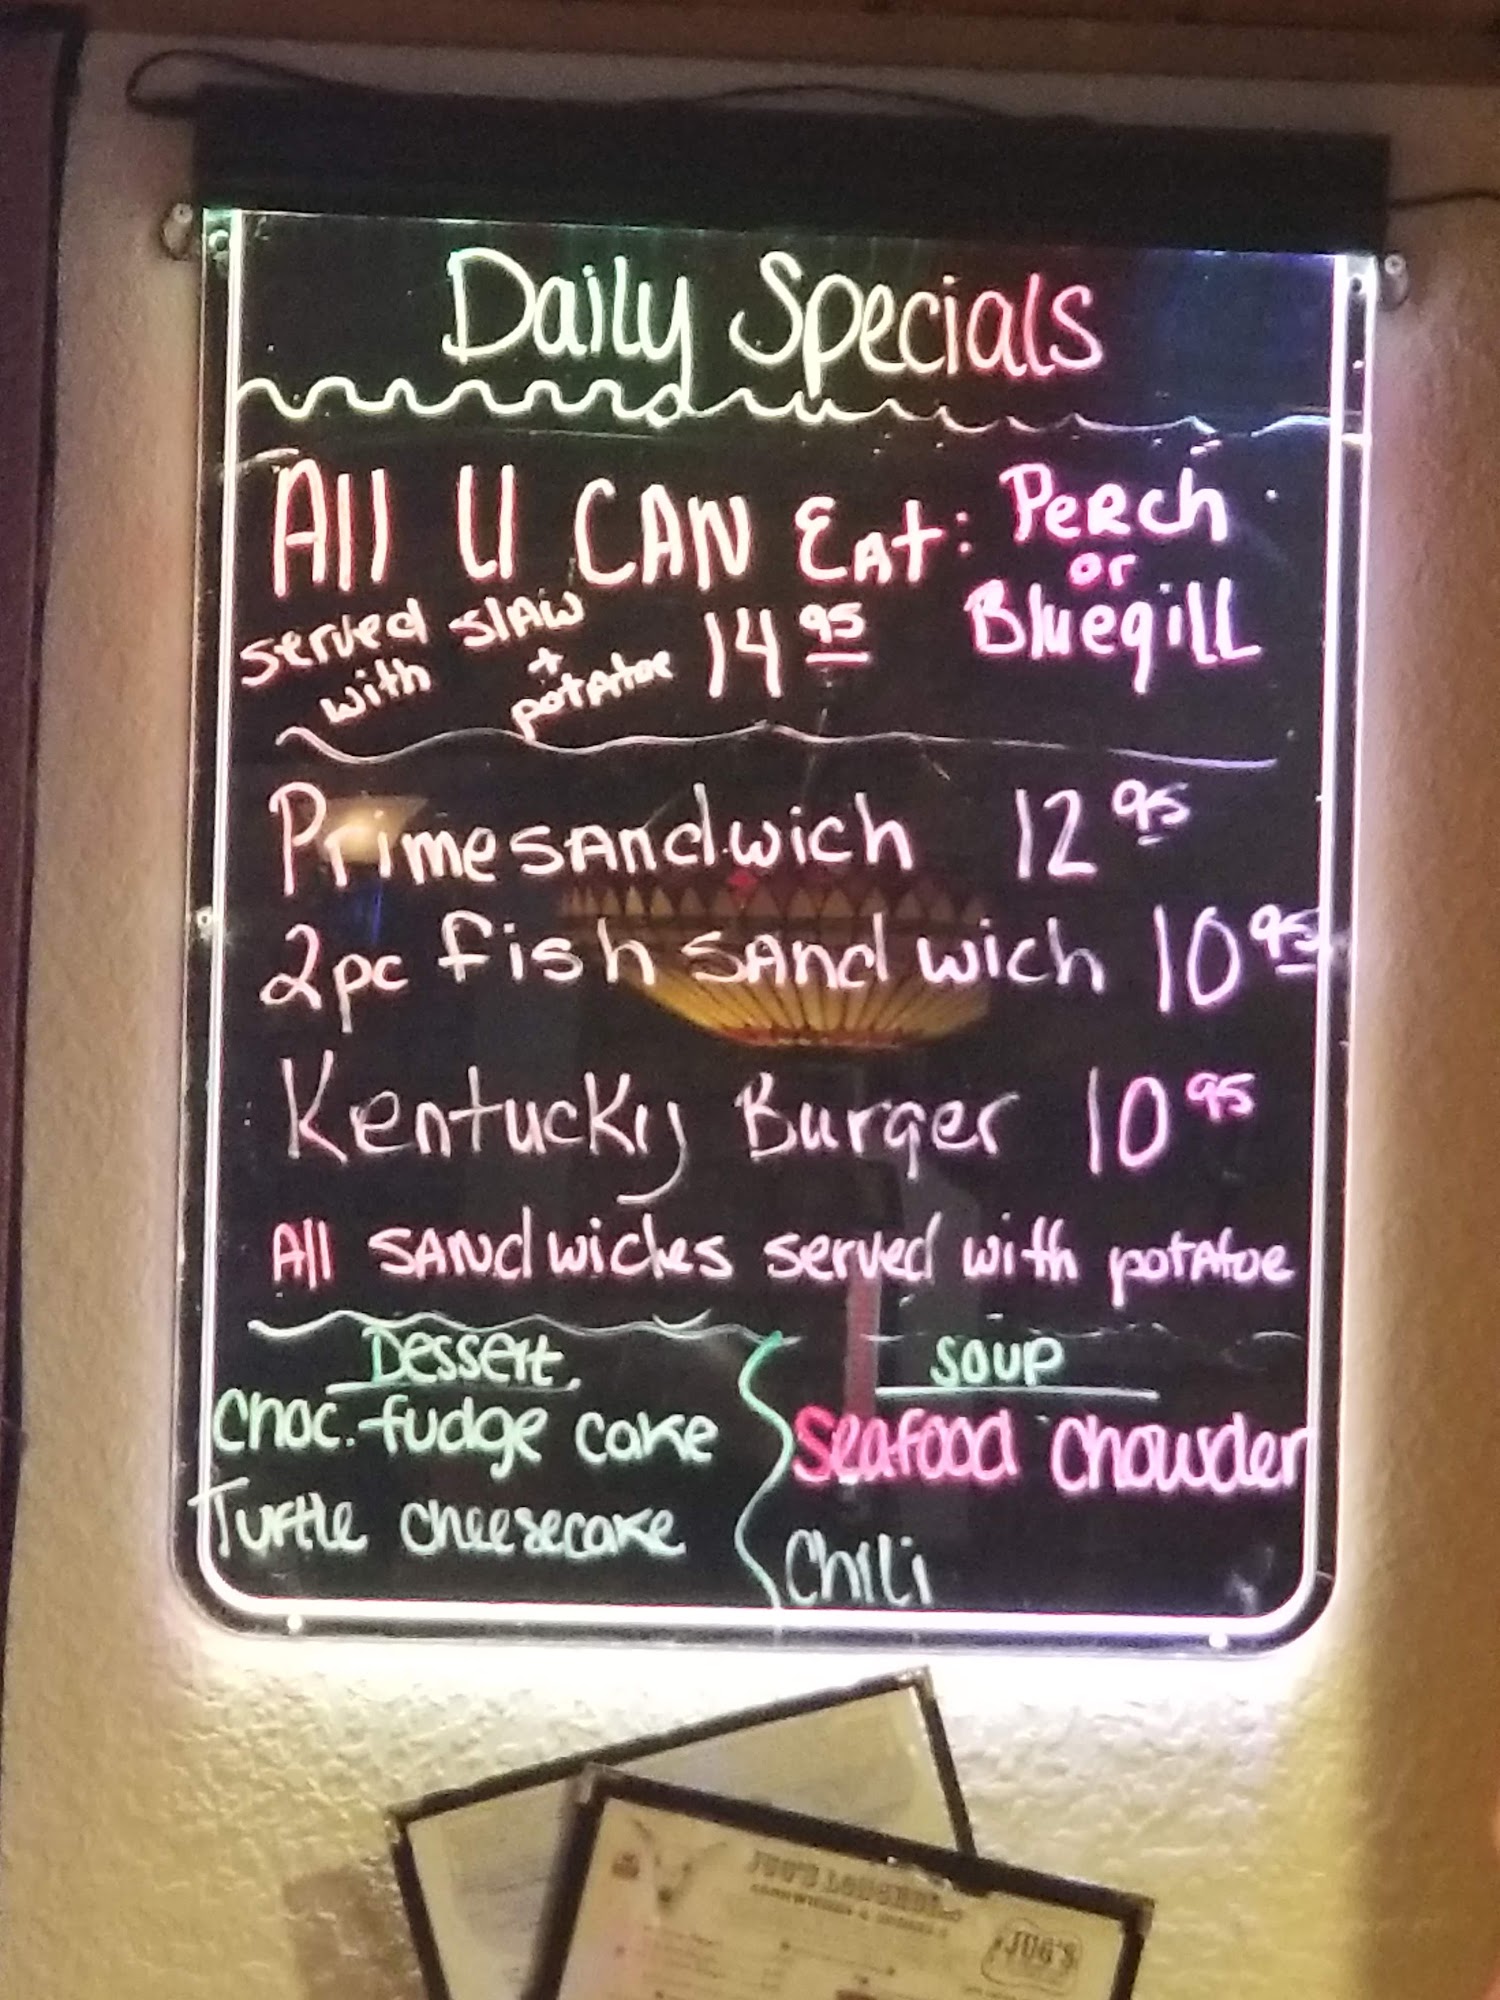 Daily Specials
All U CAN Eat: Perch
or
Bluegill
served with slaw + potatoe 14 95
Prime sandwich 12 95
2pc fish sandwich 10 95
Kentucky Burger 10 95
All sandwiches served with potatoe
Dessert
Choc. fudge cake
Turtle cheesecake
Soup
Seafood Chowder
Chili
JUG'S